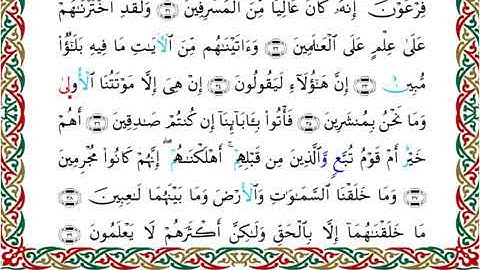 فِرْعَوْنَ إِنَّهُۥ كَانَ عَالِيًا مِّنَ ٱلْمُسْرِفِينَ ٣١ وَلَقَدِ ٱخْتَرْنَٰهُمْ
عَلَىٰ عِلْمٍ عَلَى ٱلْعَٰلَمِينَ ٣٢ وَءَاتَيْنَٰهُم مِّنَ ٱلْأٓيَٰتِ مَا فِيهِ بَلَٰٓؤٌا۟
مُّبِينٌ ٣٣ إِنَّ هَٰٓؤُلَآءِ لَيَقُولُونَ ٣٤ إِنْ هِىَ إِلَّا مَوْتَتُنَا ٱلْأُولَىٰ
وَمَا نَحْنُ بِمُنشَرِينَ ٣٥ فَأْتُوا۟ بِـَٔابَآئِنَآ إِن كُنتُمْ صَٰدِقِينَ ٣٦ أَهُمْ
خَيْرٌ أَمْ قَوْمُ تُبَّعٍ وَٱلَّذِينَ مِن قَبْلِهِمْ ۚ أَهْلَكْنَٰهُمْ ۖ إِنَّهُمْ كَانُوا۟ مُجْرِمِينَ
٣٧ وَمَا خَلَقْنَا ٱلسَّمَٰوَٰتِ وَٱلْأَرْضَ وَمَا بَيْنَهُمَا لَٰعِبِينَ ٣٨
مَا خَلَقْنَٰهُمَآ إِلَّا بِٱلْحَقِّ وَلَٰكِنَّ أَكْثَرَهُمْ لَا يَعْلَمُونَ ٣٩